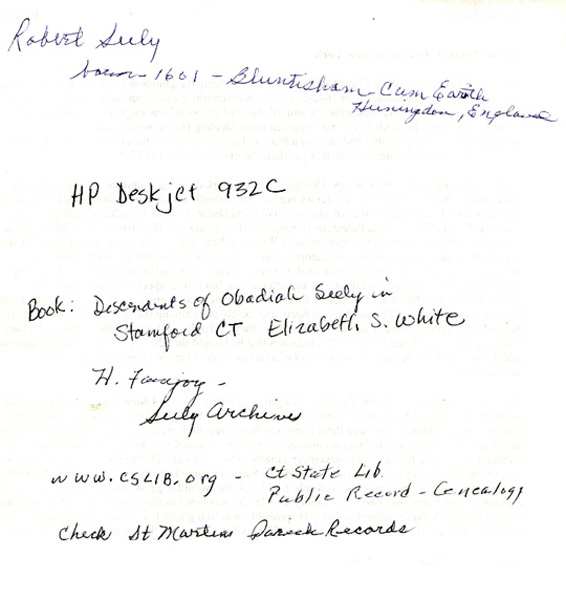 Robert Seely
born - 1601 - Bluntisham-Cum Earith
Huningdon, England
HP Deskjet 932C
Book: Descendents of Obadiah Seely in
Stamford CT Elizabeth S. White
H. -
Seely Archives
www.CSLIB.org - Ct State Lib.
Public Record - Genealogy
Check St Martins Parish Records